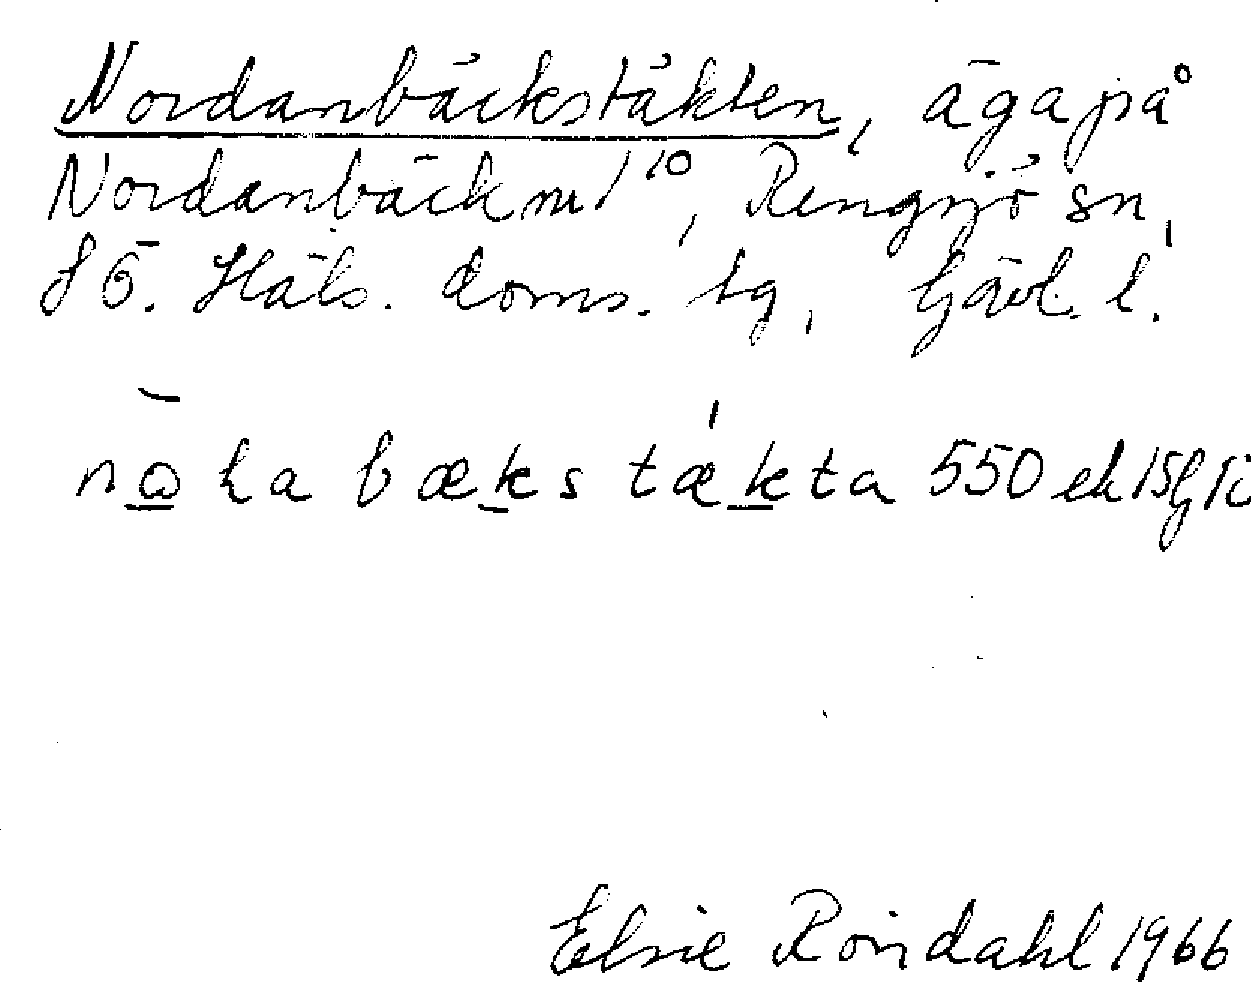 Nordanbäckstäkten, äga på
Nordanbäck m 1¹⁰, Rengsjö sn,
f Ö. Häls. doms. tg, Gävl. l.
na ha bæks tækta 550 ek 15
Elsie Roindahl 1966